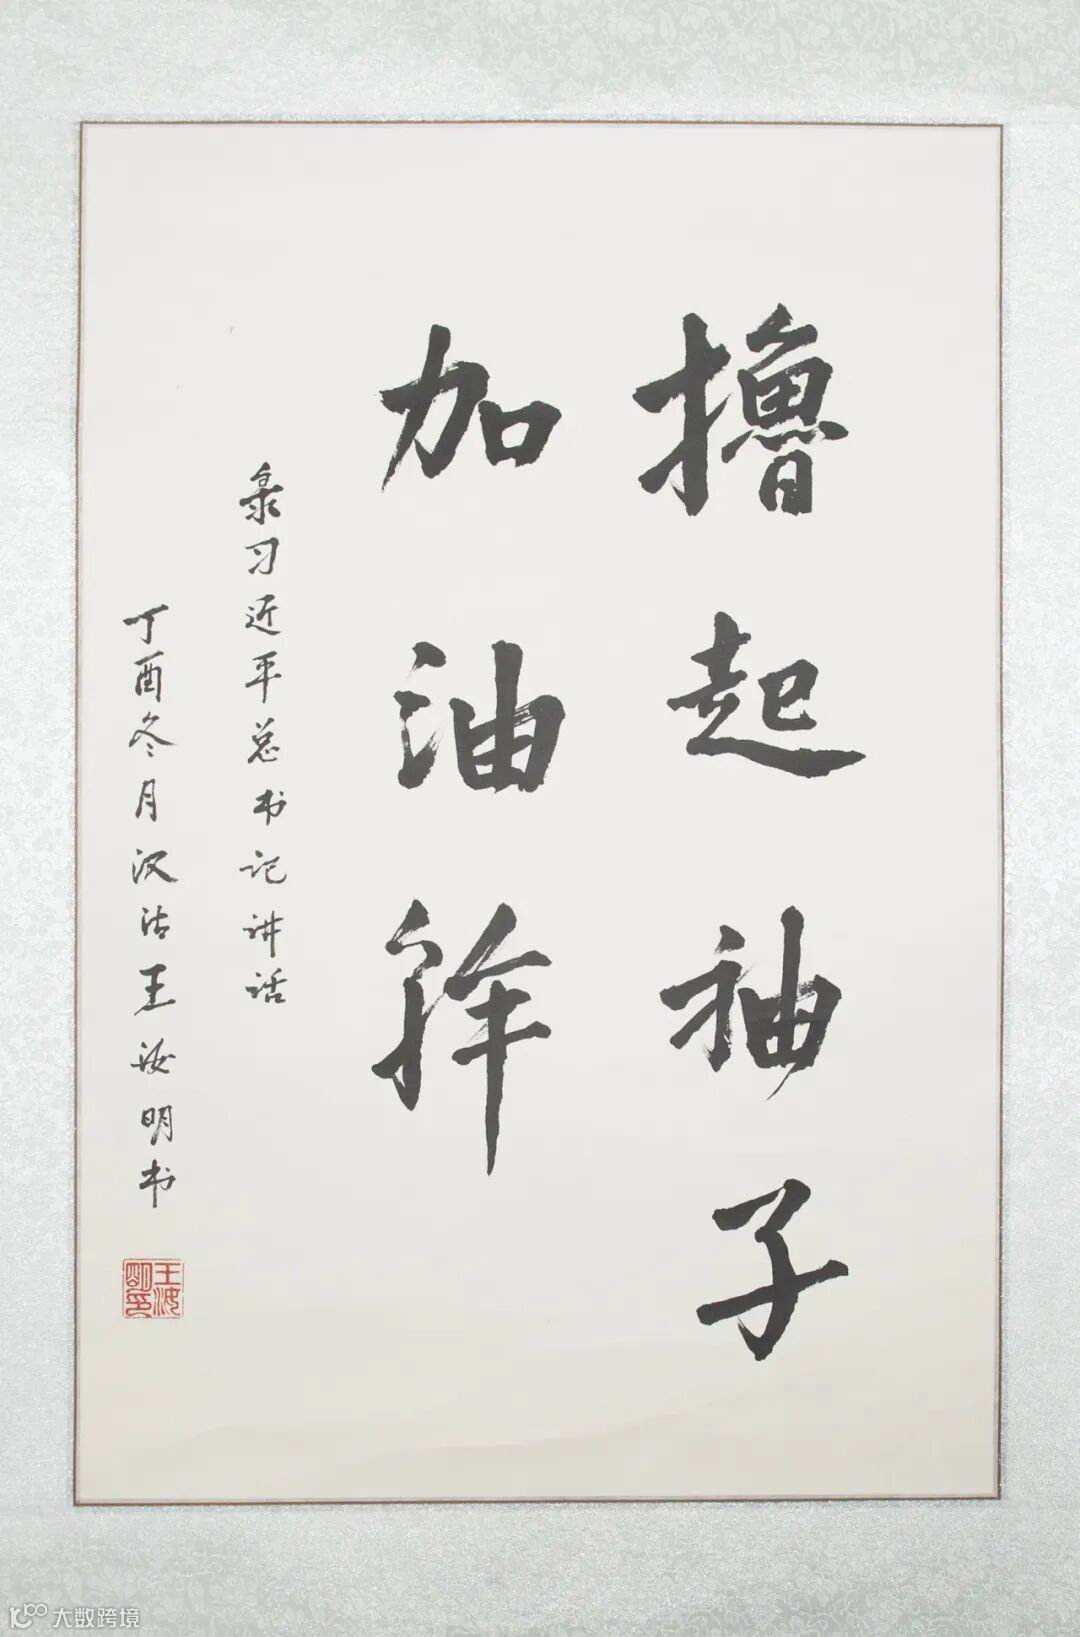 擼起袖子
加油幹
录习近平总书记讲话
丁酉冬月汉沽王汝明书
王汝明印
大数跨境